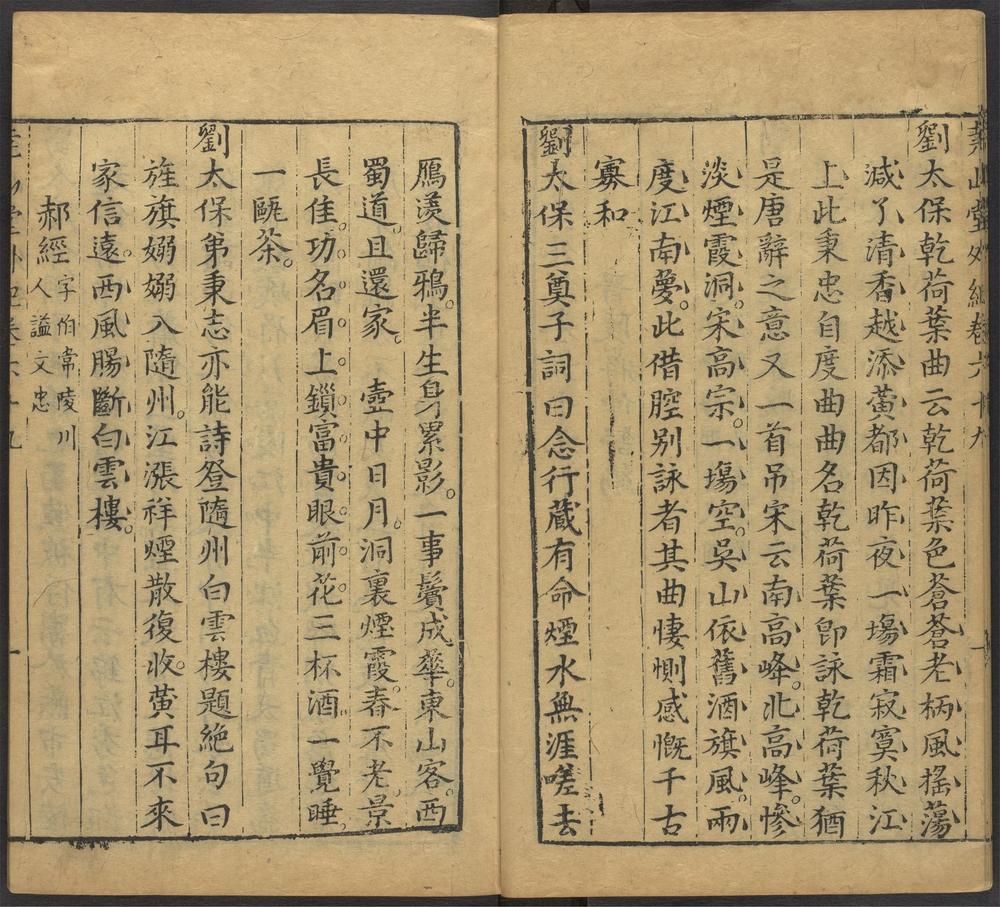 堯山堂外紀卷六十九
劉太保乾荷葉曲云乾荷葉色蒼蒼老柄風搖蕩
減了清香越添黃都因昨夜一塲霜寂寞秋江
上此秉忠自度曲曲名乾荷葉即詠乾荷葉猶
是唐辭之意又一首吊宋云南高峰北高峰慘
淡煙霞洞宋高宗一塲空吳山依舊酒旗風兩
度江南夢此借腔别詠者其曲悽惻感慨千古
寡和
劉太保三奠子詞曰念行藏有命煙水無涯嗟去
鴈羡歸鴉半生身累影一事鬢成華東山客西
蜀道且還家　壺中日月洞裏煙霞春不老景
長佳功名眉上鎖富貴眼前花三杯酒一覺睡
一甌茶
劉太保弟秉志亦能詩登隨州白雲樓題絶句曰
旌旗嫋嫋入隨州江漲祥煙散復收黃耳不來
家信遠西風腸斷白雲樓
郝經字伯常陵川人謚文忠